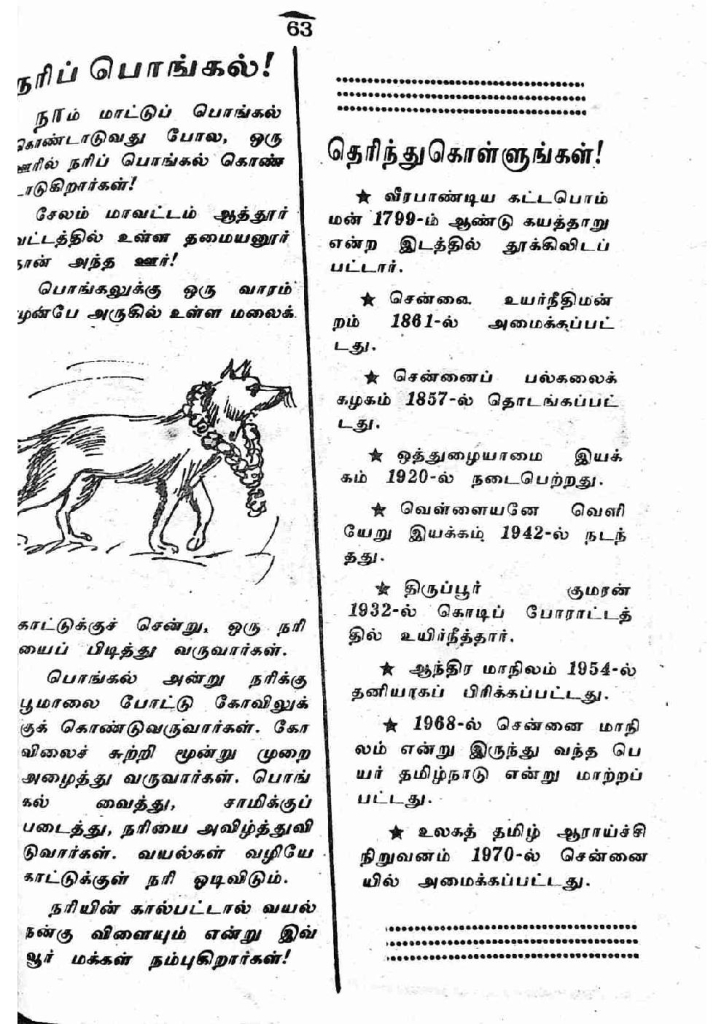 63
நரிப் பொங்கல்!
நாம் மாட்டுப் பொங்கல்
கொண்டாடுவது போல, ஒரு
ஊரில் நரிப் பொங்கல் கொண்
டாடுகிறார்கள்!
சேலம் மாவட்டம் ஆத்தூர்
வட்டத்தில் உள்ள தமையனூர்
தான் அந்த ஊர்!
பொங்கலுக்கு ஒரு வாரம்
முன்பே அருகில் உள்ள மலைக்
காட்டுக்குச் சென்று, ஒரு நரி
யைப் பிடித்து வருவார்கள்.
பொங்கல் அன்று நரிக்கு
பூமாலை போட்டு கோவிலுக்
குக் கொண்டுவருவார்கள். கோ
விலைச் சுற்றி மூன்று முறை
அழைத்து வருவார்கள். பொங்
கல் வைத்து, சாமிக்குப்
படைத்து, நரியை அவிழ்த்துவி
டுவார்கள். வயல்கள் வழியே
காட்டுக்குள் நரி ஓடிவிடும்.
நரியின் கால்பட்டால் வயல்
நன்கு விளையும் என்று இவ்
வூர் மக்கள் நம்புகிறார்கள்!
தெரிந்துகொள்ளுங்கள்!
★ வீரபாண்டிய கட்டபொம்
மன் 1799-ம் ஆண்டு கயத்தாறு
என்ற இடத்தில் தூக்கிலிடப்
பட்டார்.
★ சென்னை உயர்நீதிமன்
றம் 1861-ல் அமைக்கப்பட்
டது.
★ சென்னைப் பல்கலைக்
கழகம் 1857-ல் தொடங்கப்பட்
டது.
★ ஒத்துழையாமை இயக்
கம் 1920-ல் நடைபெற்றது.
★ வெள்ளையனே வெளி
யேறு இயக்கம் 1942-ல் நடந்
தது.
★ திருப்பூர் குமரன்
1932-ல் கொடிப் போராட்டத்
தில் உயிர்நீத்தார்.
★ ஆந்திர மாநிலம் 1954-ல்
தனியாகப் பிரிக்கப்பட்டது.
★ 1968-ல் சென்னை மாநி
லம் என்று இருந்து வந்த பெ
யர் தமிழ்நாடு என்று மாற்றப்
பட்டது.
★ உலகத் தமிழ் ஆராய்ச்சி
நிறுவனம் 1970-ல் சென்னை
யில் அமைக்கப்பட்டது.